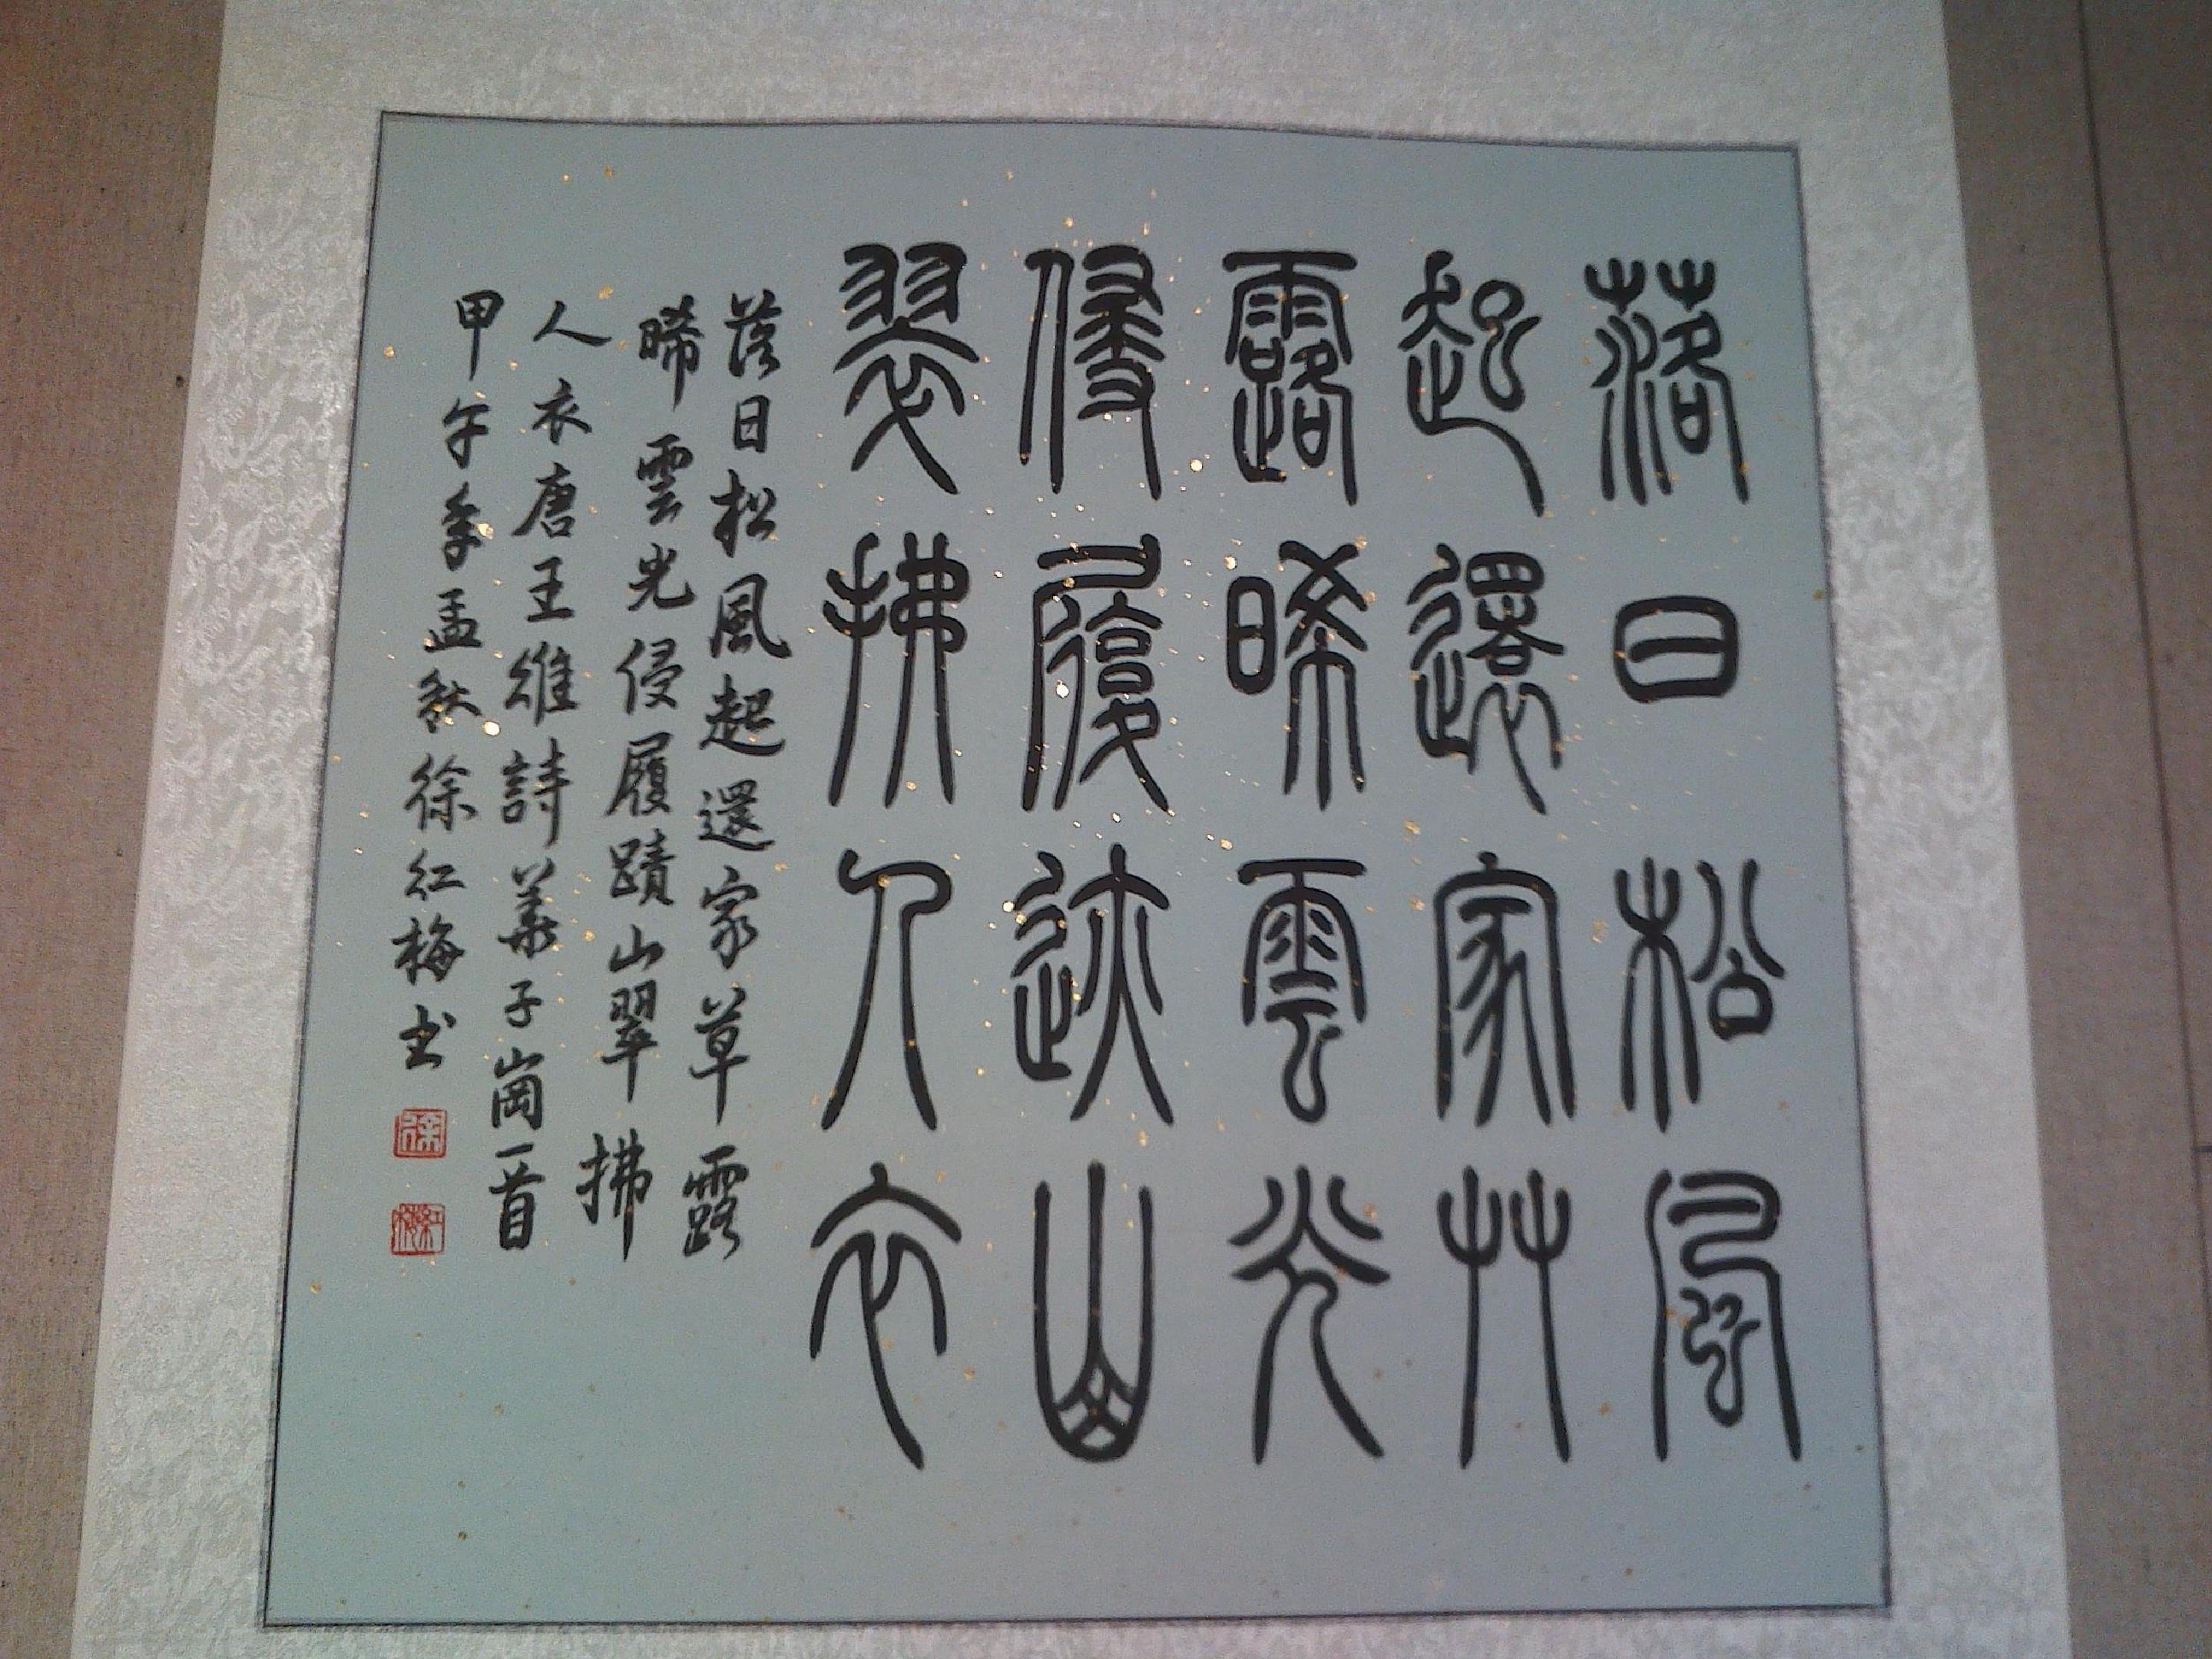 落日松風
起還家艸
露晞雲光
侵履迹山
翠拂人衣
落日松風起還家草露
晞雲光侵履蹟山翠拂
人衣唐王維詩華子崗一首
甲午年孟秋徐红梅书
徐
红梅